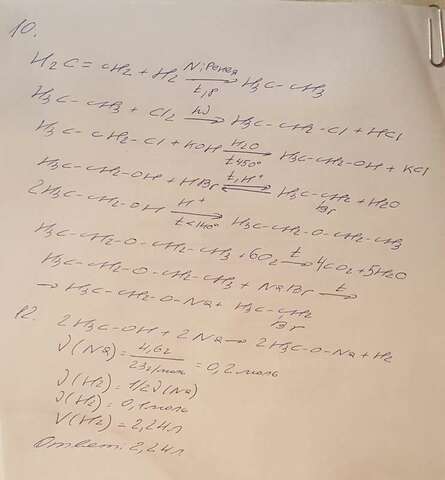 10.
H₂C = CH₂ + H₂ Ni Ренея t, p → H₃C – CH₃
H₃C – CH₃ + Cl₂ hν → H₃C – CH₂ – Cl + HCl
H₃C – CH₂ – Cl + KOH H₂O t 450° → H₃C – CH₂ – OH + KCl
H₃C – CH₂ – OH + HBr t, H⁺ ⇄ H₃C – CH₂ + H₂O
Br
2H₃C – CH₂ – OH H⁺ t<140° → H₃C – CH₂ – O – CH₂ – CH₃
H₃C – CH₂ – O – CH₂ – CH₃ + 6O₂ t → 4CO₂ + 5H₂O
H₃C – CH₂ – O – CH₂ – CH₃ + NaBr t →
→ H₃C – CH₂ – O – Na + H₃C – CH₂
Br
12.
2H₃C – OH + 2Na → 2H₃C – O – Na + H₂
ν(Na) = 4,6г / 23г/моль = 0,2 моль
ν(H₂) = 1/2 ν(Na)
ν(H₂) = 0,1 моль
V(H₂) = 2,24л
Ответ: 2,24л